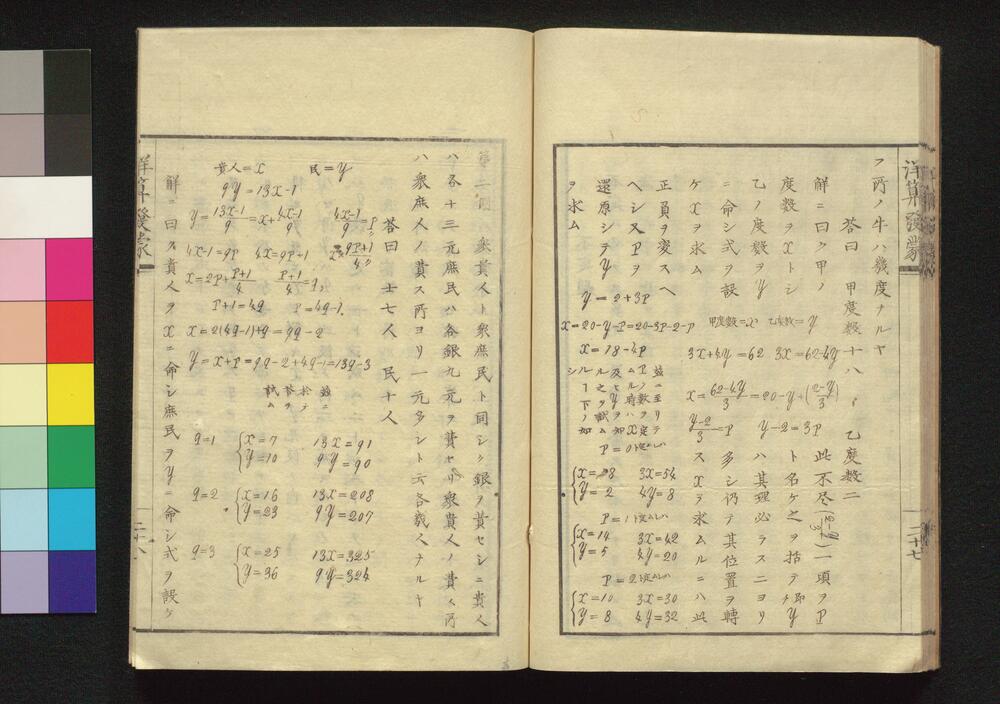 洋算發蒙
フ所ノ牛ハ幾度ナルヤ
答曰 甲度数十八 乙度数二
解ニ曰ク甲ノ
度数ヲXトシ
乙ノ度数ヲY
ニ命シ式ヲ設
ケXヲ求ム
甲度数=X 乙度数=Y
3X+4Y=62 3X=62-4Y
X=62-4Y/3=20-Y+(2-Y/3)
Y-2/3=P Y-2=3P
一項ヲP
ト名ケ之ヲ括テ即チY
ハ其理必ラスニヨリ
多シ仍テ其位置ヲ轉
スXヲ求ムルニハ此
正員ヲ変スヘ
ヘシ又Pヲ
還原シテY
ヲ求ム
Y=2+3P
X=20-Y-P=20-3P-2-P
X=18-4P
玆ニ至リテ
P=0ト定ムレハ
X=18 3X=54
Y=2 4Y=8
P=1ト定ムレハ
X=14 3X=42
Y=5 4Y=20
P=2ト定ムレハ
X=10 3X=30
Y=8 4Y=32
二十七
第二例 衆貴人ト衆庶民ト同シク銀ヲ費セシニ貴人
ハ各十三元庶民ハ各銀九元ヲ費セリ衆貴人ノ費ス所
ハ衆庶人ノ費ス所ヨリ一元多シト云各幾人ナルヤ
答曰 士七人 民十人
貴人=X 民=Y
9Y=13X-1
Y=13X-1/9=X+4X-1/9 4X-1/9=P
4X-1=9P 4X=9P+1 X=9P+1/4
X=2P+P+1/4 P+1/4=q
P+1=4q P=4q-1
X=2(4q-1)+q=9q-2
Y=X+P=9q-2+4q-1=13q-3
玆ニ
於テ
答ヲ
試ム
q=1 X=7 13X=91
Y=10 9Y=90
q=2 X=16 13X=208
Y=23 9Y=207
q=3 X=25 13X=325
Y=36 9Y=324
解ニ曰ス貴人ヲXニ命シ庶民ヲYニ命シ式ヲ設ケ
洋算發蒙
二十八